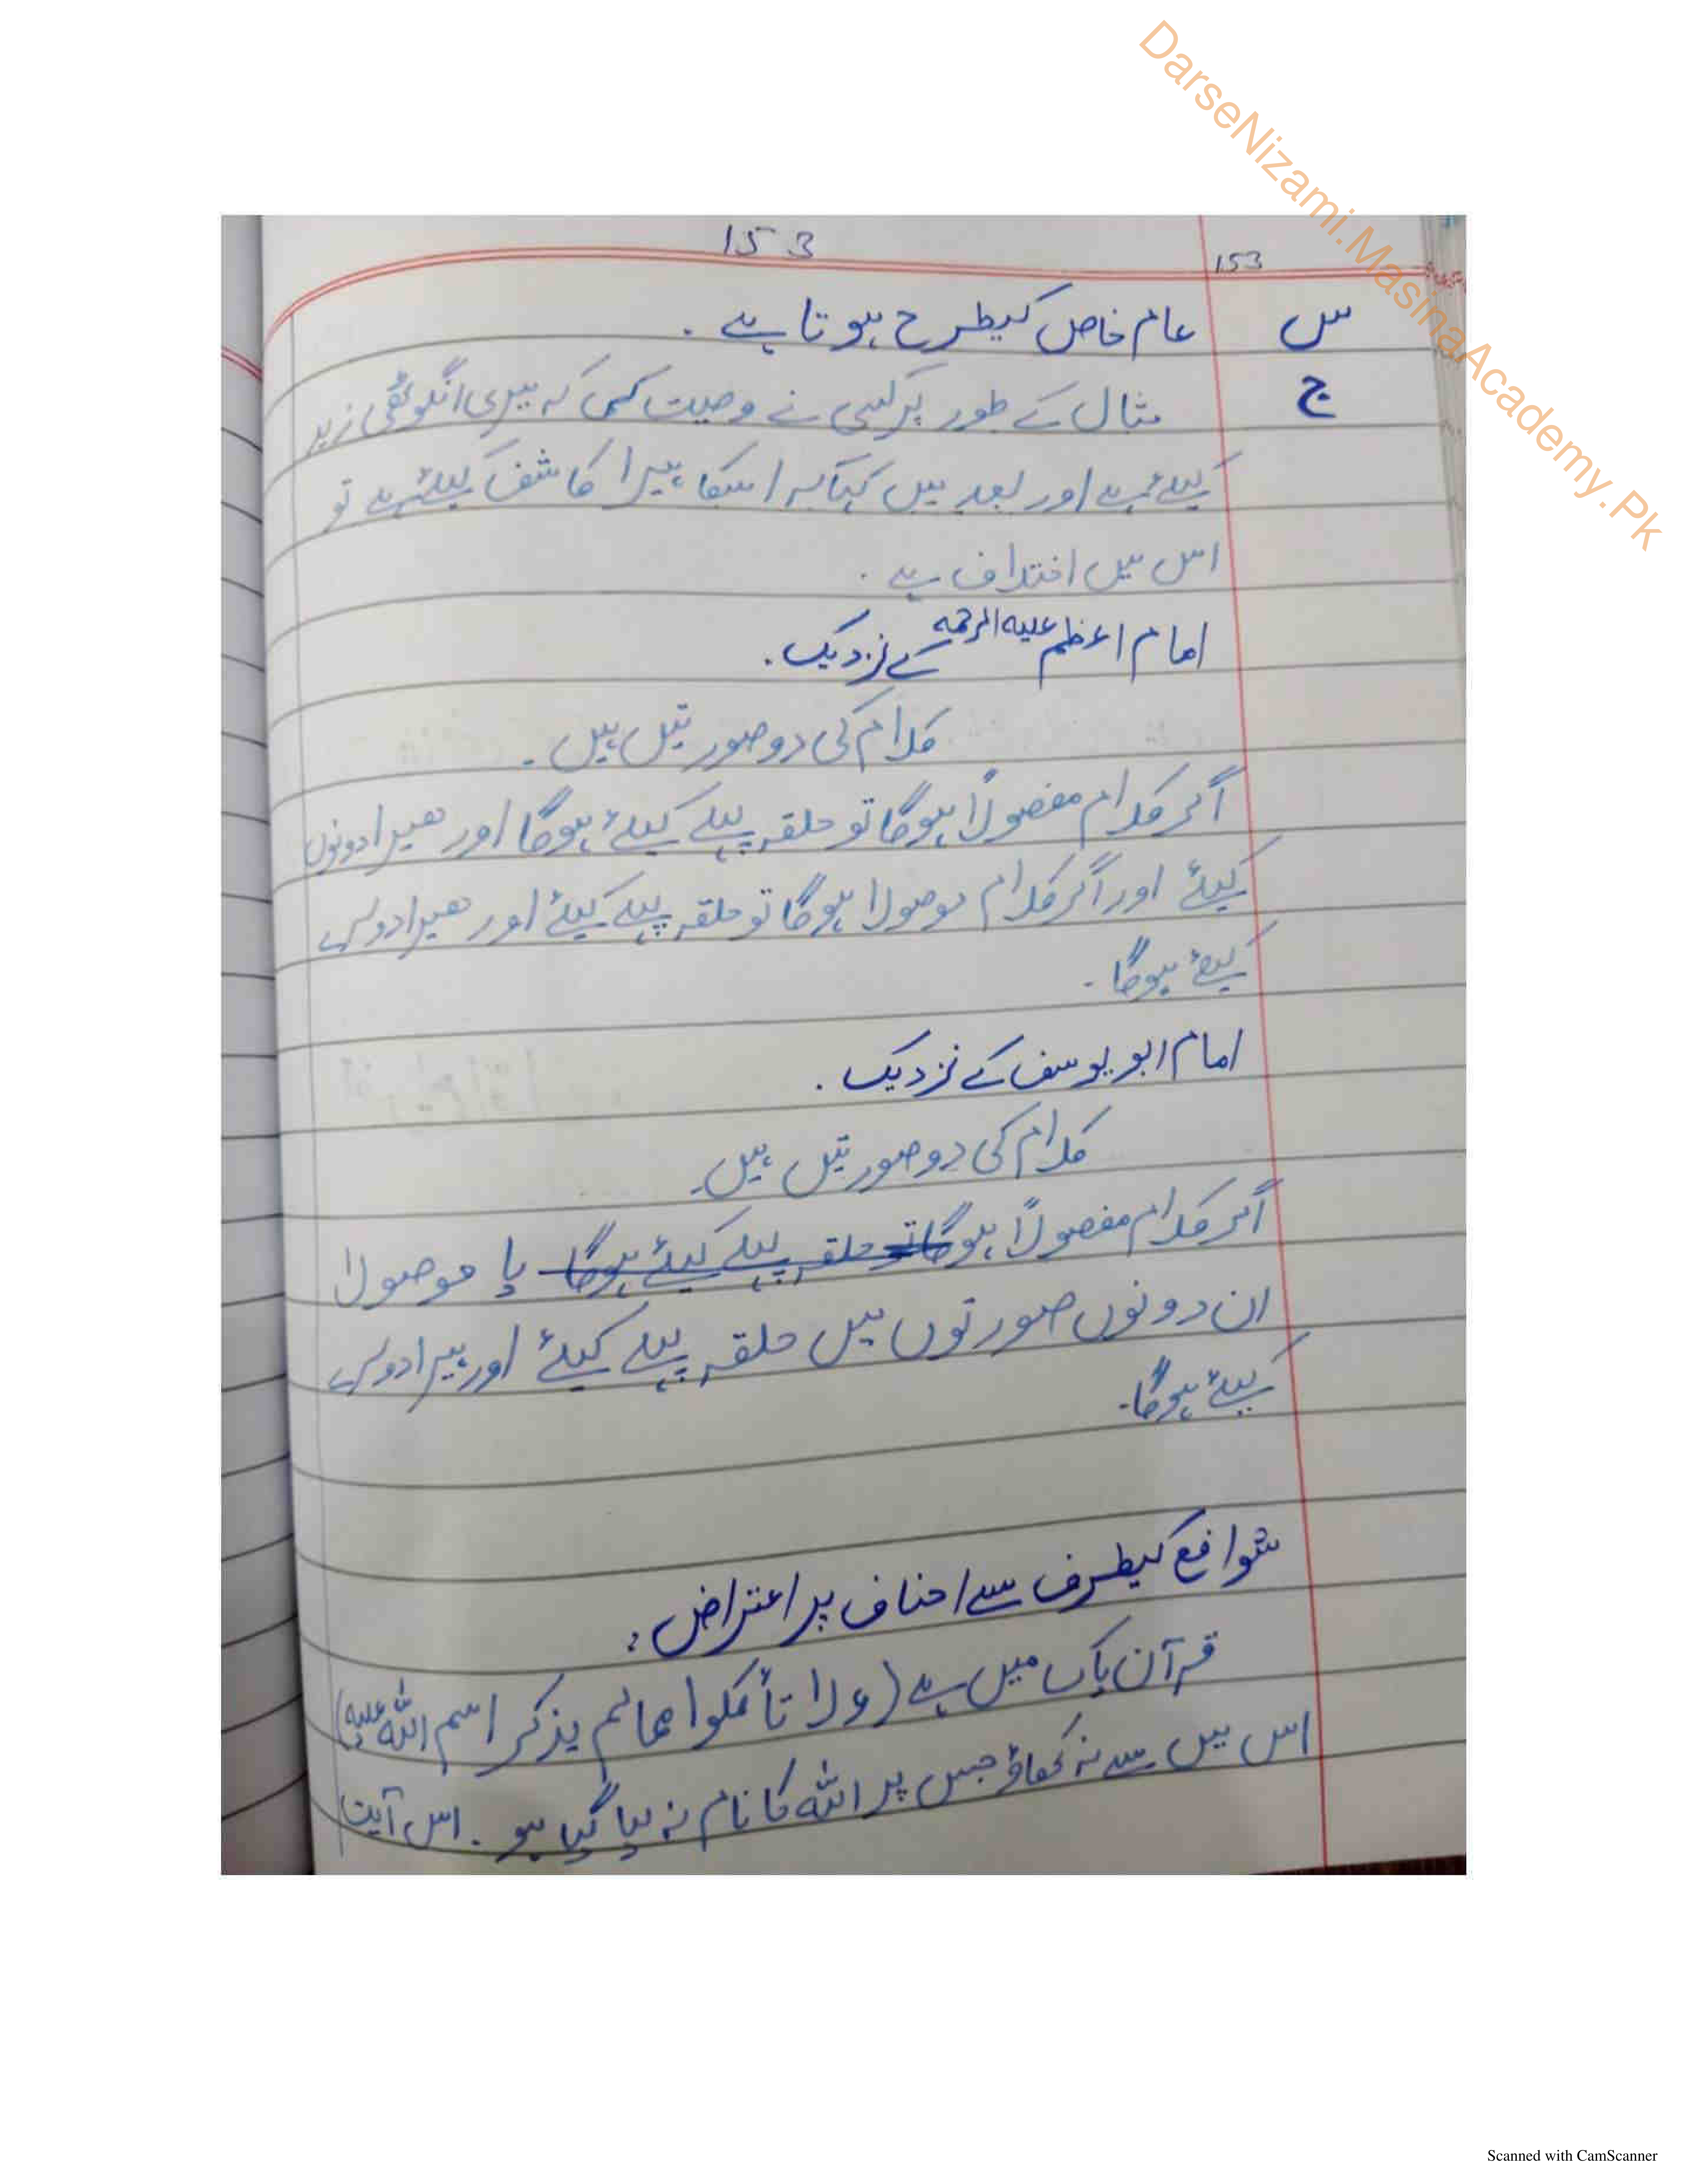 DarseNizami.MasinaAcademy.Pk
153
153
س عام خاص کیطرح ہوتا ہے ۔
ج مثال کے طور پر کسی نے وصیت کی کہ میری انگوٹھی زید
کیلئے ہے اور بعد میں کہتا ہے اسکا ہیرا کاشف کیلئے ہے تو
اس میں اختلاف ہے ۔
امام اعظم علیہ الرحمہ کے نزدیک ۔
کلام کی دو صورتیں ہیں ۔
اگر کلام مفصولاً ہوگا تو حلقہ پہلے کیلئے ہوگا اور ھیرا دونوں
کیلئے اور اگر کلام موصولا ہوگا تو حلقہ پہلے کیلئے اور ھیرا دوسرے
کیلئے ہوگا ۔
امام ابو یوسف کے نزدیک ۔
کلام کی دو صورتیں ہیں ۔
اگر کلام مفصولاً ہوگا تو حلقہ پہلے کیلئے ہوگا یا موصولا
ان دونوں صورتوں میں حلقہ پہلے کیلئے اور ہیرا دوسرے
کیلئے ہوگا ۔
شوافع کیطرف سے احناف پر اعتراض :
قرآن پاک میں ہے (ولا تأکلوا مما لم یذکر اسم اللہ علیہ)
اس میں سے نہ کھاؤ جس پر اللہ کا نام نہ لیا گیا ہو ۔ اس آیت
Scanned with CamScanner